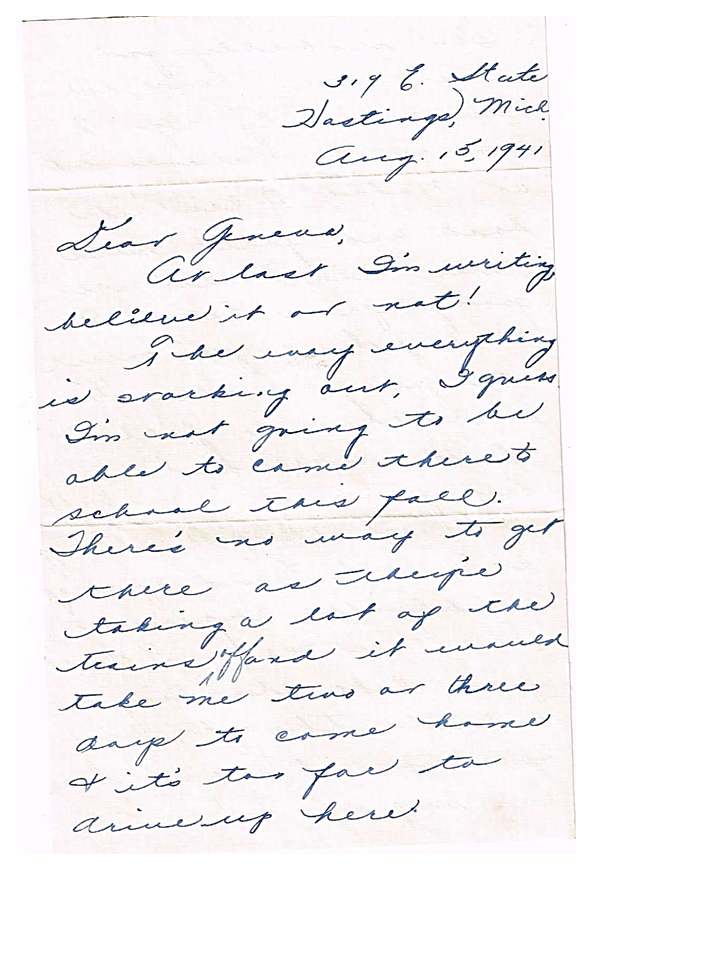 319 E. State
Hastings, Mich.
Aug. 15, 1941
Dear Geneva,
At last I'm writing,
believe it or not!
The way everything
is working out, I guess
I'm not going to be
able to come there to
school this fall.
There's no way to get
there as they're
taking a lot of the
trains off and it would
take me two or three
days to come home
& it's too far to
drive up here.